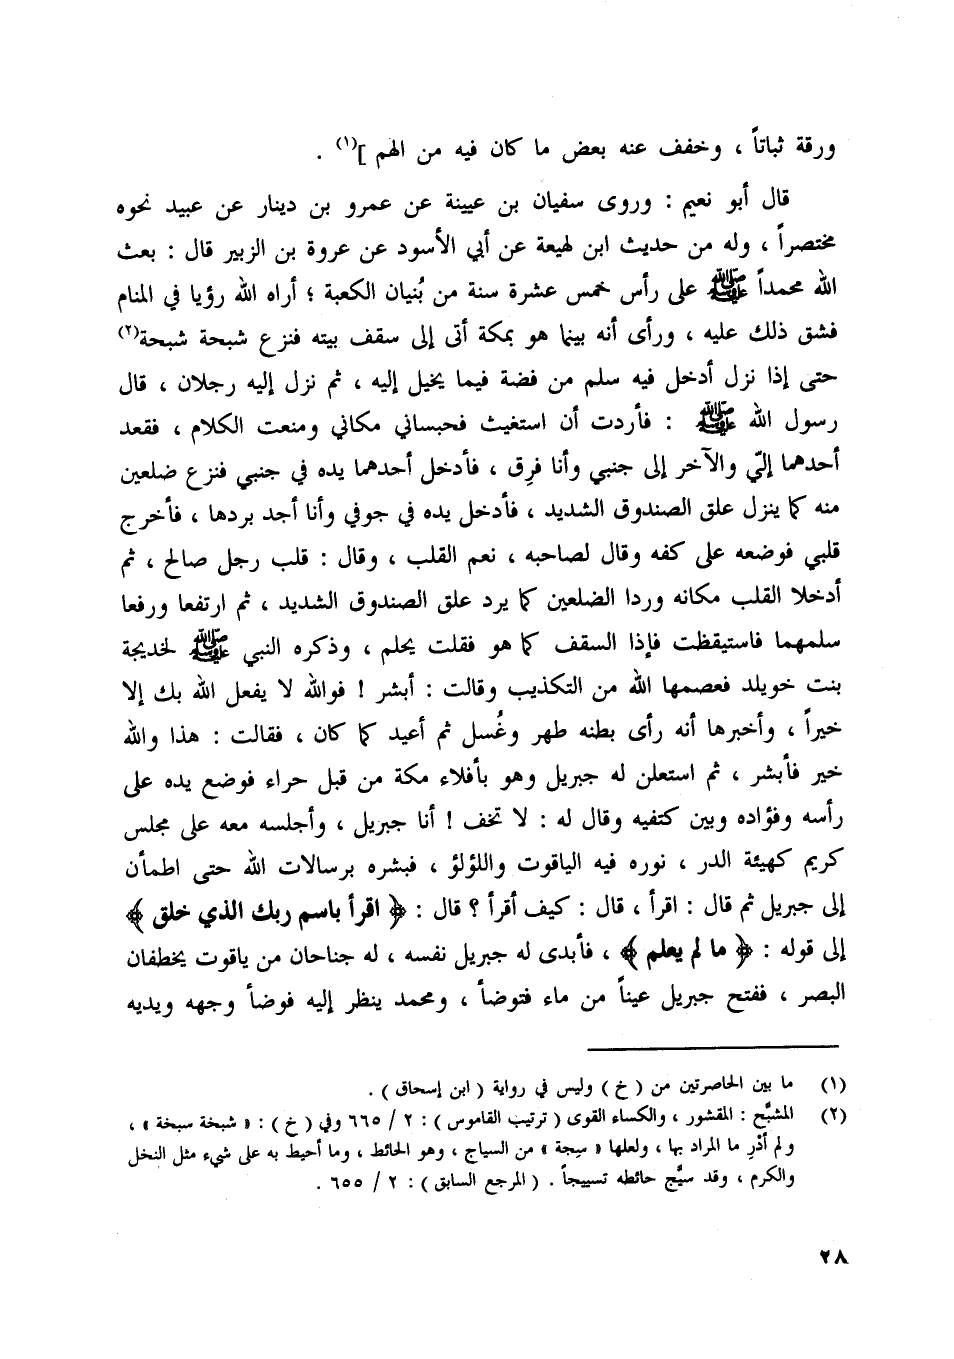 ورقة ثباتاً ، وخفف عنه بعض ما كان فيه من الهم ](١) .
قال أبو نعيم : وروى سفيان بن عيينة عن عمرو بن دينار عن عبيد نحوه
مختصراً ، وله من حديث ابن لهيعة عن أبي الأسود عن عروة بن الزبير قال : بعث
الله محمداً ﷺ على رأس خمس عشرة سنة من بُنيان الكعبة ؛ أراه الله رؤيا في المنام
فشق ذلك عليه ، ورأى أنه بينما هو بمكة أتى إلى سقف بيته فنزع شبحة شبحة(٢)
حتى إذا نزل أدخل فيه سلم من فضة فيما يخيل إليه ، ثم نزل إليه رجلان ، قال
رسول الله ﷺ : فأردت أن استغيث فحبساني مكاني ومنعت الكلام ، فقعد
أحدهما إليّ والآخر إلى جنبي وأنا فرِق ، فأدخل أحدهما يده في جنبي فنزع ضلعين
منه كما ينزل علق الصندوق الشديد ، فأدخل يده في جوفي وأنا أجد بردها ، فأخرج
قلبي فوضعه على كفه وقال لصاحبه ، نعم القلب ، وقال : قلب رجل صالح ، ثم
أدخلا القلب مكانه وردا الضلعين كما يرد علق الصندوق الشديد ، ثم ارتفعا ورفعا
سلمهما فاستيقظت فإذا السقف كما هو فقلت يحلم ، وذكره النبي ﷺ لخديجة
بنت خويلد فعصمها الله من التكذيب وقالت : أبشر ! فوالله لا يفعل الله بك إلا
خيراً ، وأخبرها أنه رأى بطنه طهر وغُسل ثم أعيد كما كان ، فقالت : هذا والله
خير فأبشر ، ثم استعلن له جبريل وهو بأفلاء مكة من قبل حراء فوضع يده على
رأسه وفؤاده وبين كتفيه وقال له : لا تخف ! أنا جبريل ، وأجلسه معه على مجلس
كريم كهيئة الدر ، نوره فيه الياقوت واللؤلؤ ، فبشره برسالات الله حتى اطمأن
إلى جبريل ثم قال : اقرأ ، قال : كيف أقرأ ؟ قال : ﴿ اقرأ باسم ربك الذي خلق ﴾
إلى قوله : ﴿ ما لم يعلم ﴾ ، فأبدى له جبريل نفسه ، له جناحان من ياقوت يخطفان
البصر ، ففتح جبريل عيناً من ماء فتوضأ ، ومحمد ينظر إليه فوضأ وجهه ويديه
(١) ما بين الحاصرتين من ( خ ) وليس في رواية ( ابن إسحاق ) .
(٢) المشبَّح : المقشور ، والكساء القوى ( ترتيب القاموس ) : ٢ / ٦٦٥ وفي ( خ ) : « شبخة سبخة » ،
ولم أدْرِ ما المراد بها ، ولعلها « سِجة » من السياج ، وهو الحائط ، وما أحيط به على شيء مثل النخل
والكرم ، وقد سيَّج حائطه تسييجاً . ( المرجع السابق ) : ٢ / ٦٥٥ .
٢٨